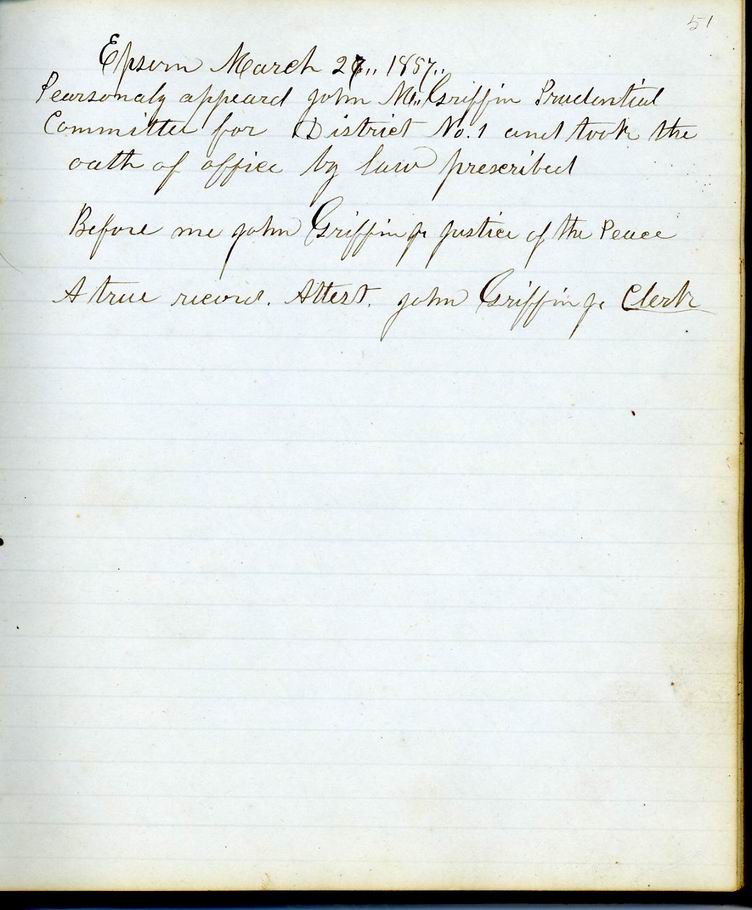 51
Epsom March 27,, 1857,,
Pearsonaly appeard John M,, Griffin Prudential
Committee for District No. 1 and took the
oath of office by law prescribed
Before me John Griffin Jr Justice of the Peace
A true record. Attest. John Griffin Jr Clerk